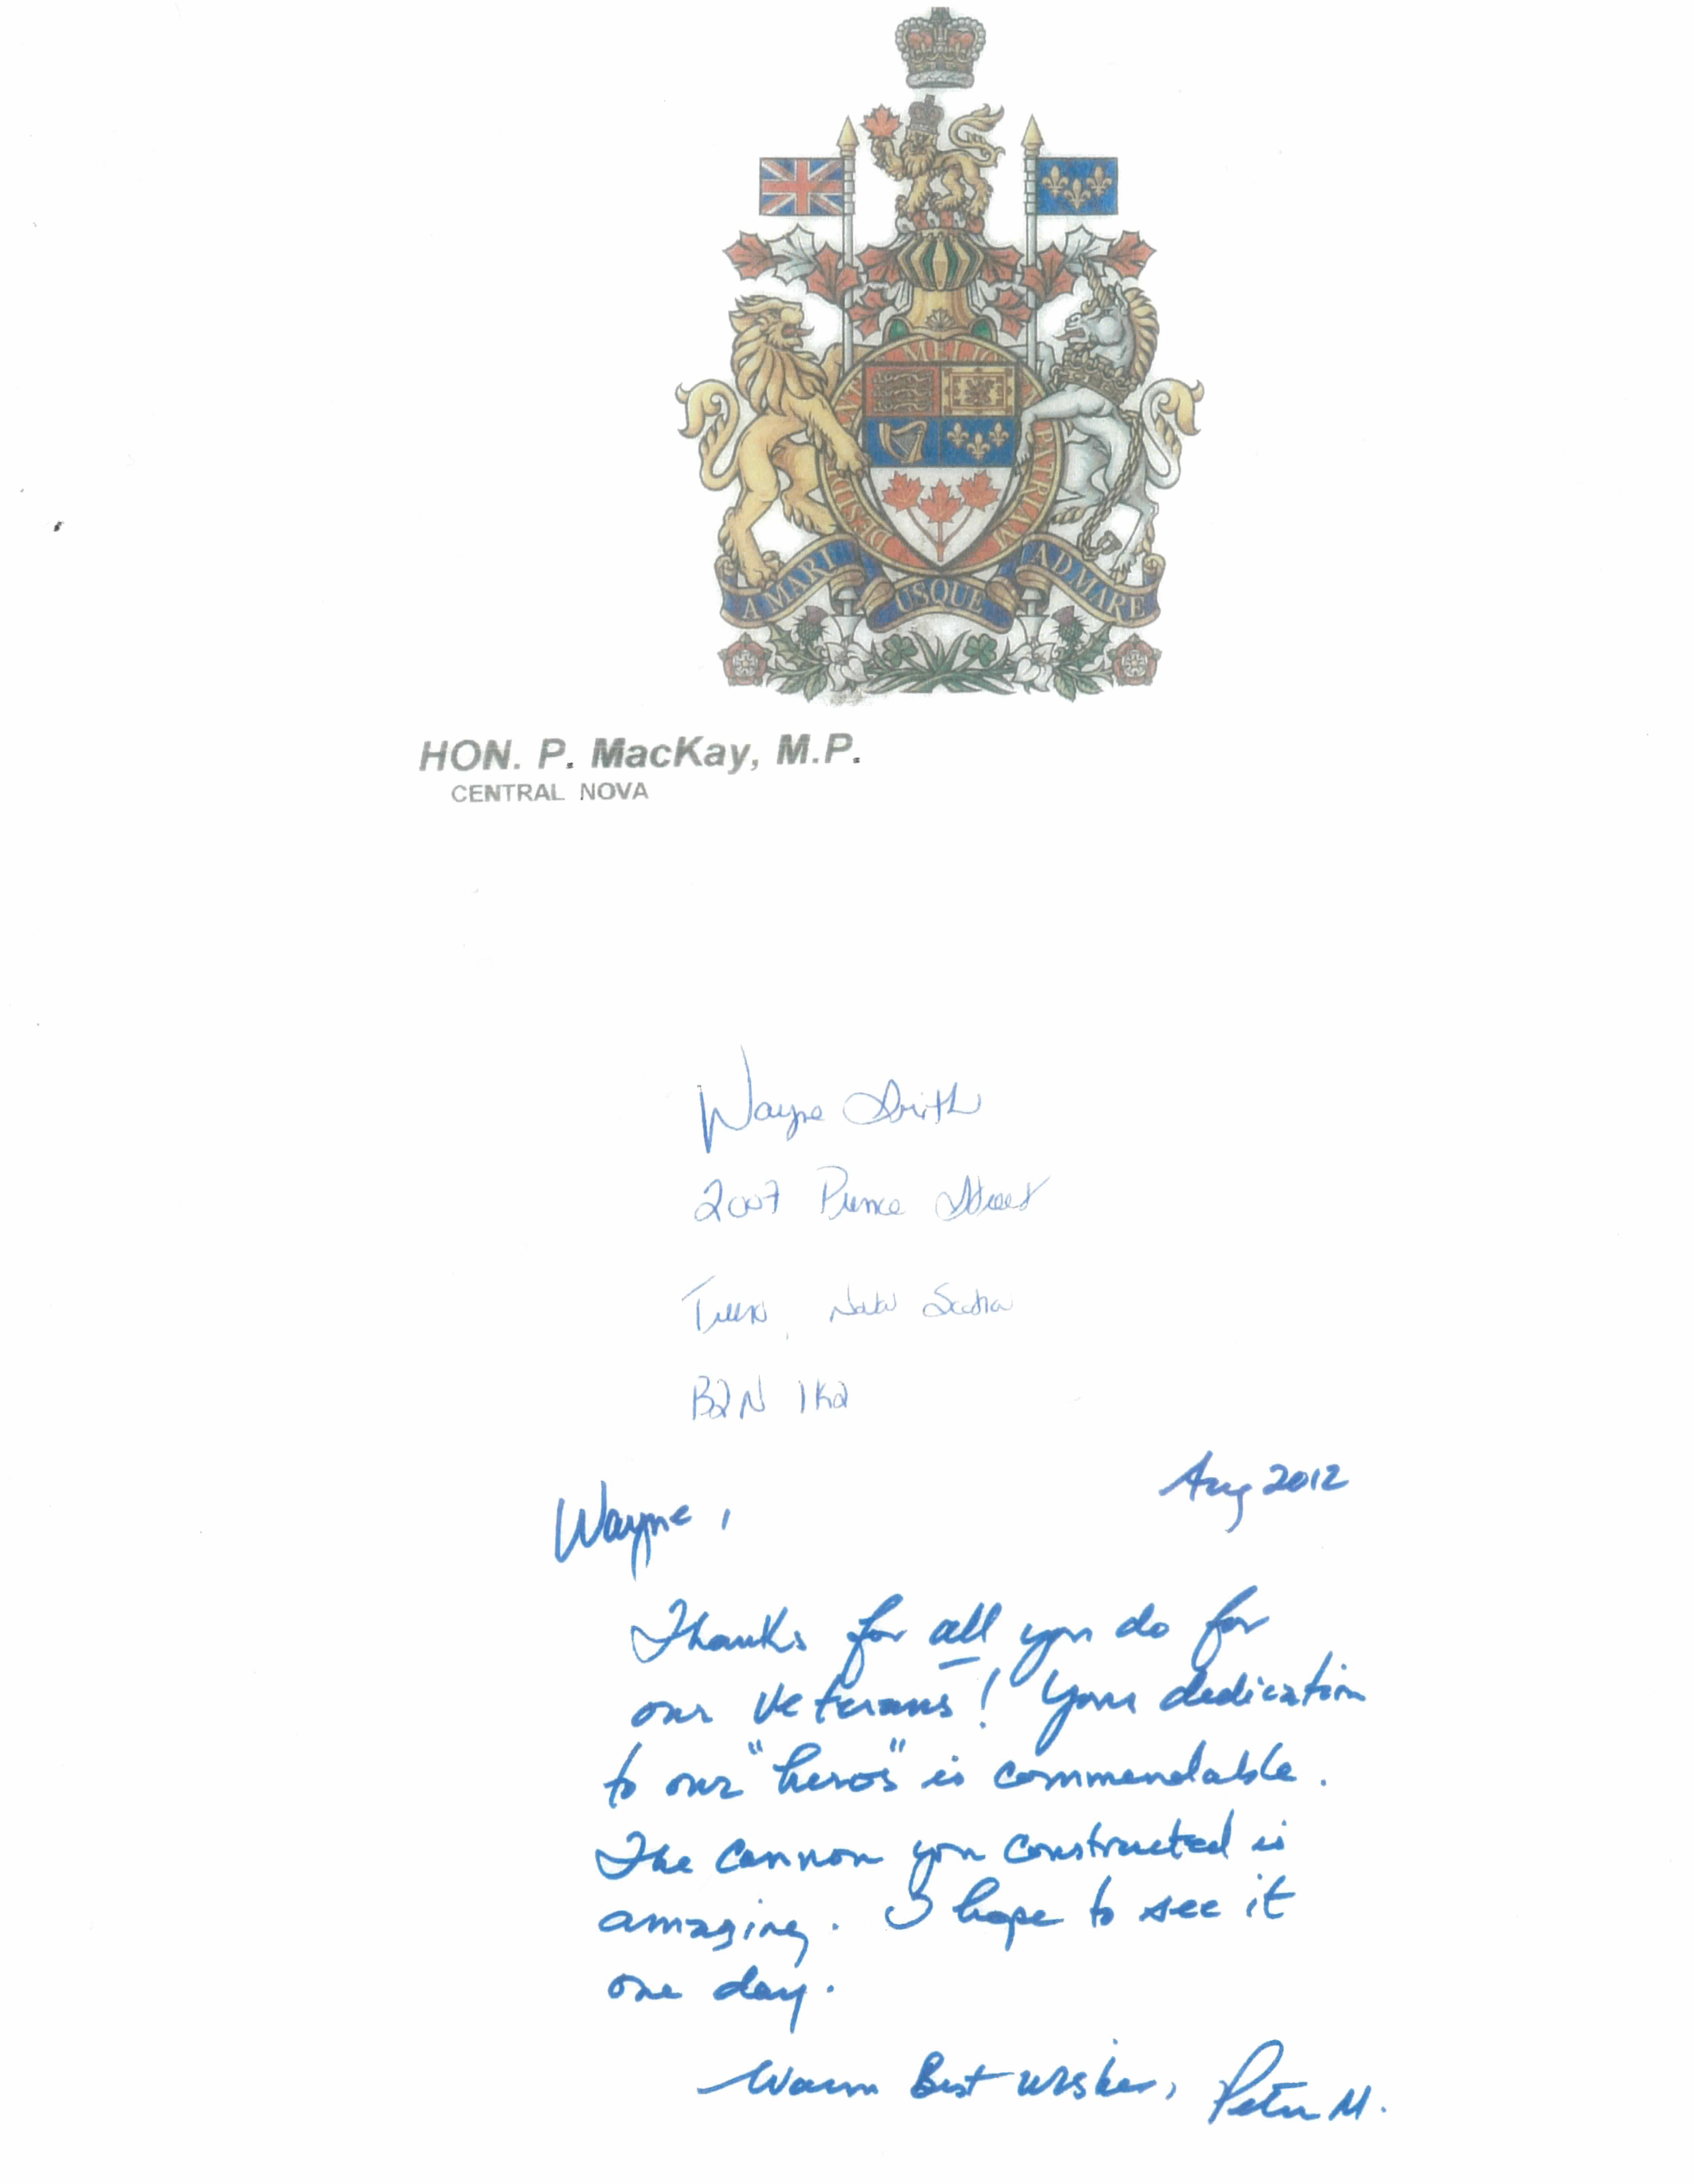 MELIO
DESIDE
PATRIAM
A MARI USQUE AD MARE
HON. P. MacKay, M.P.
CENTRAL NOVA
Wayne Smith
2007 Prince Street
Truro, Nova Scotia
B2N 1K2
Aug 2012
Wayne,
Thanks for all you do for
our Veterans! Your dedication
to our "heros" is commendable.
The cannon you constructed is
amazing. I hope to see it
one day.
Warm Best wishes, Peter M.